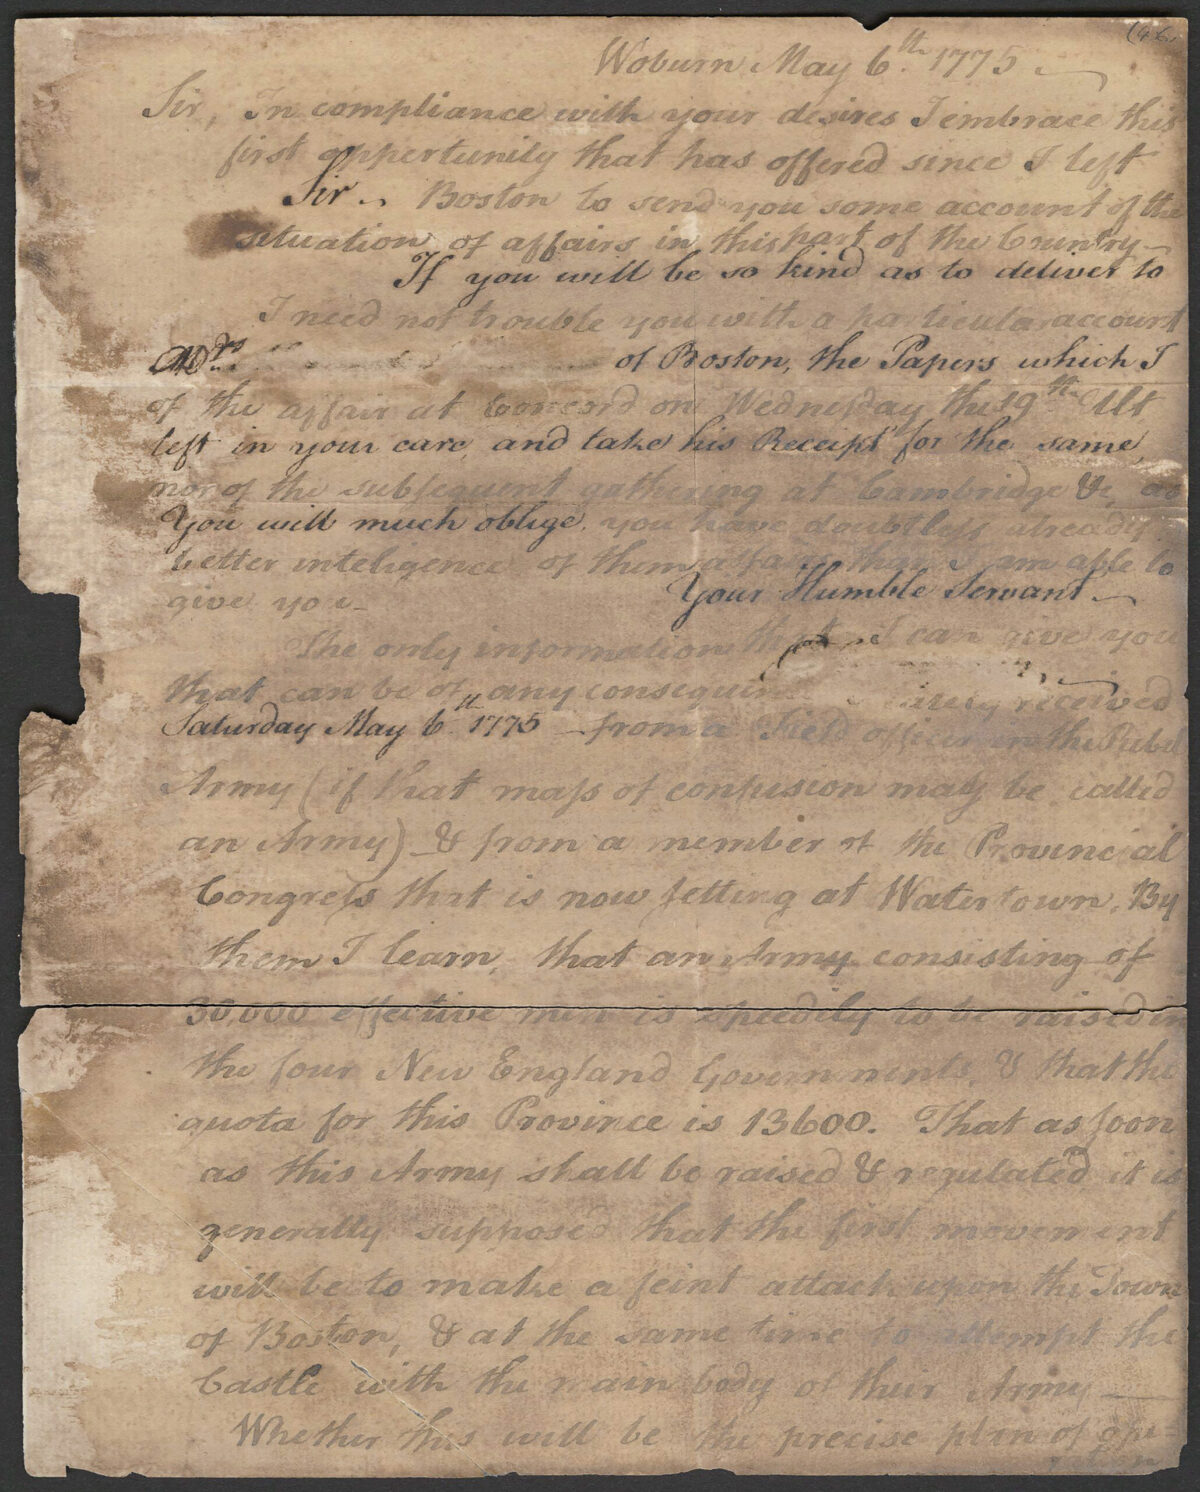 (46)
Woburn May 6th. 1775
Sir, In compliance with your desires I embrace this
first oppertunity that has offered since I left
Sir Boston to send you some account of the
situation of affairs in this part of the Country
If you will be so kind as to deliver to
I need not trouble you with a particular account
Mrs. of Boston, the Papers which I
of the affair at Concord on Wednesday the 19th Ult
left in your care, and take his Receipt for the same,
nor of the subsequent gathering at Cambridge &c, as
You will much oblige, you have doubtless already
better inteligence of them affairs than I am able to
Your Humble Servant
give you
The only information that I can give you
that can be of any consequence received
Saturday May 6th 1775 from a Field officer in the Rebel
Army (if that mass of confusion may be called
an Army) & from a member of the Provincial
Congress that is now setting at Watertown. By
them I learn, that an Army consisting of
30,000 effective men is speedily to be raised in
the four New England Governments, & that the
quota for this Province is 13600. That as soon
as this Army shall be raised & regulated it is
generally supposed that the first movement
will be to make a feint attack upon the Town
of Boston, & at the same time to attempt the
Castle with the main body of their Army
Whether this will be the precise plan of ope=
ration